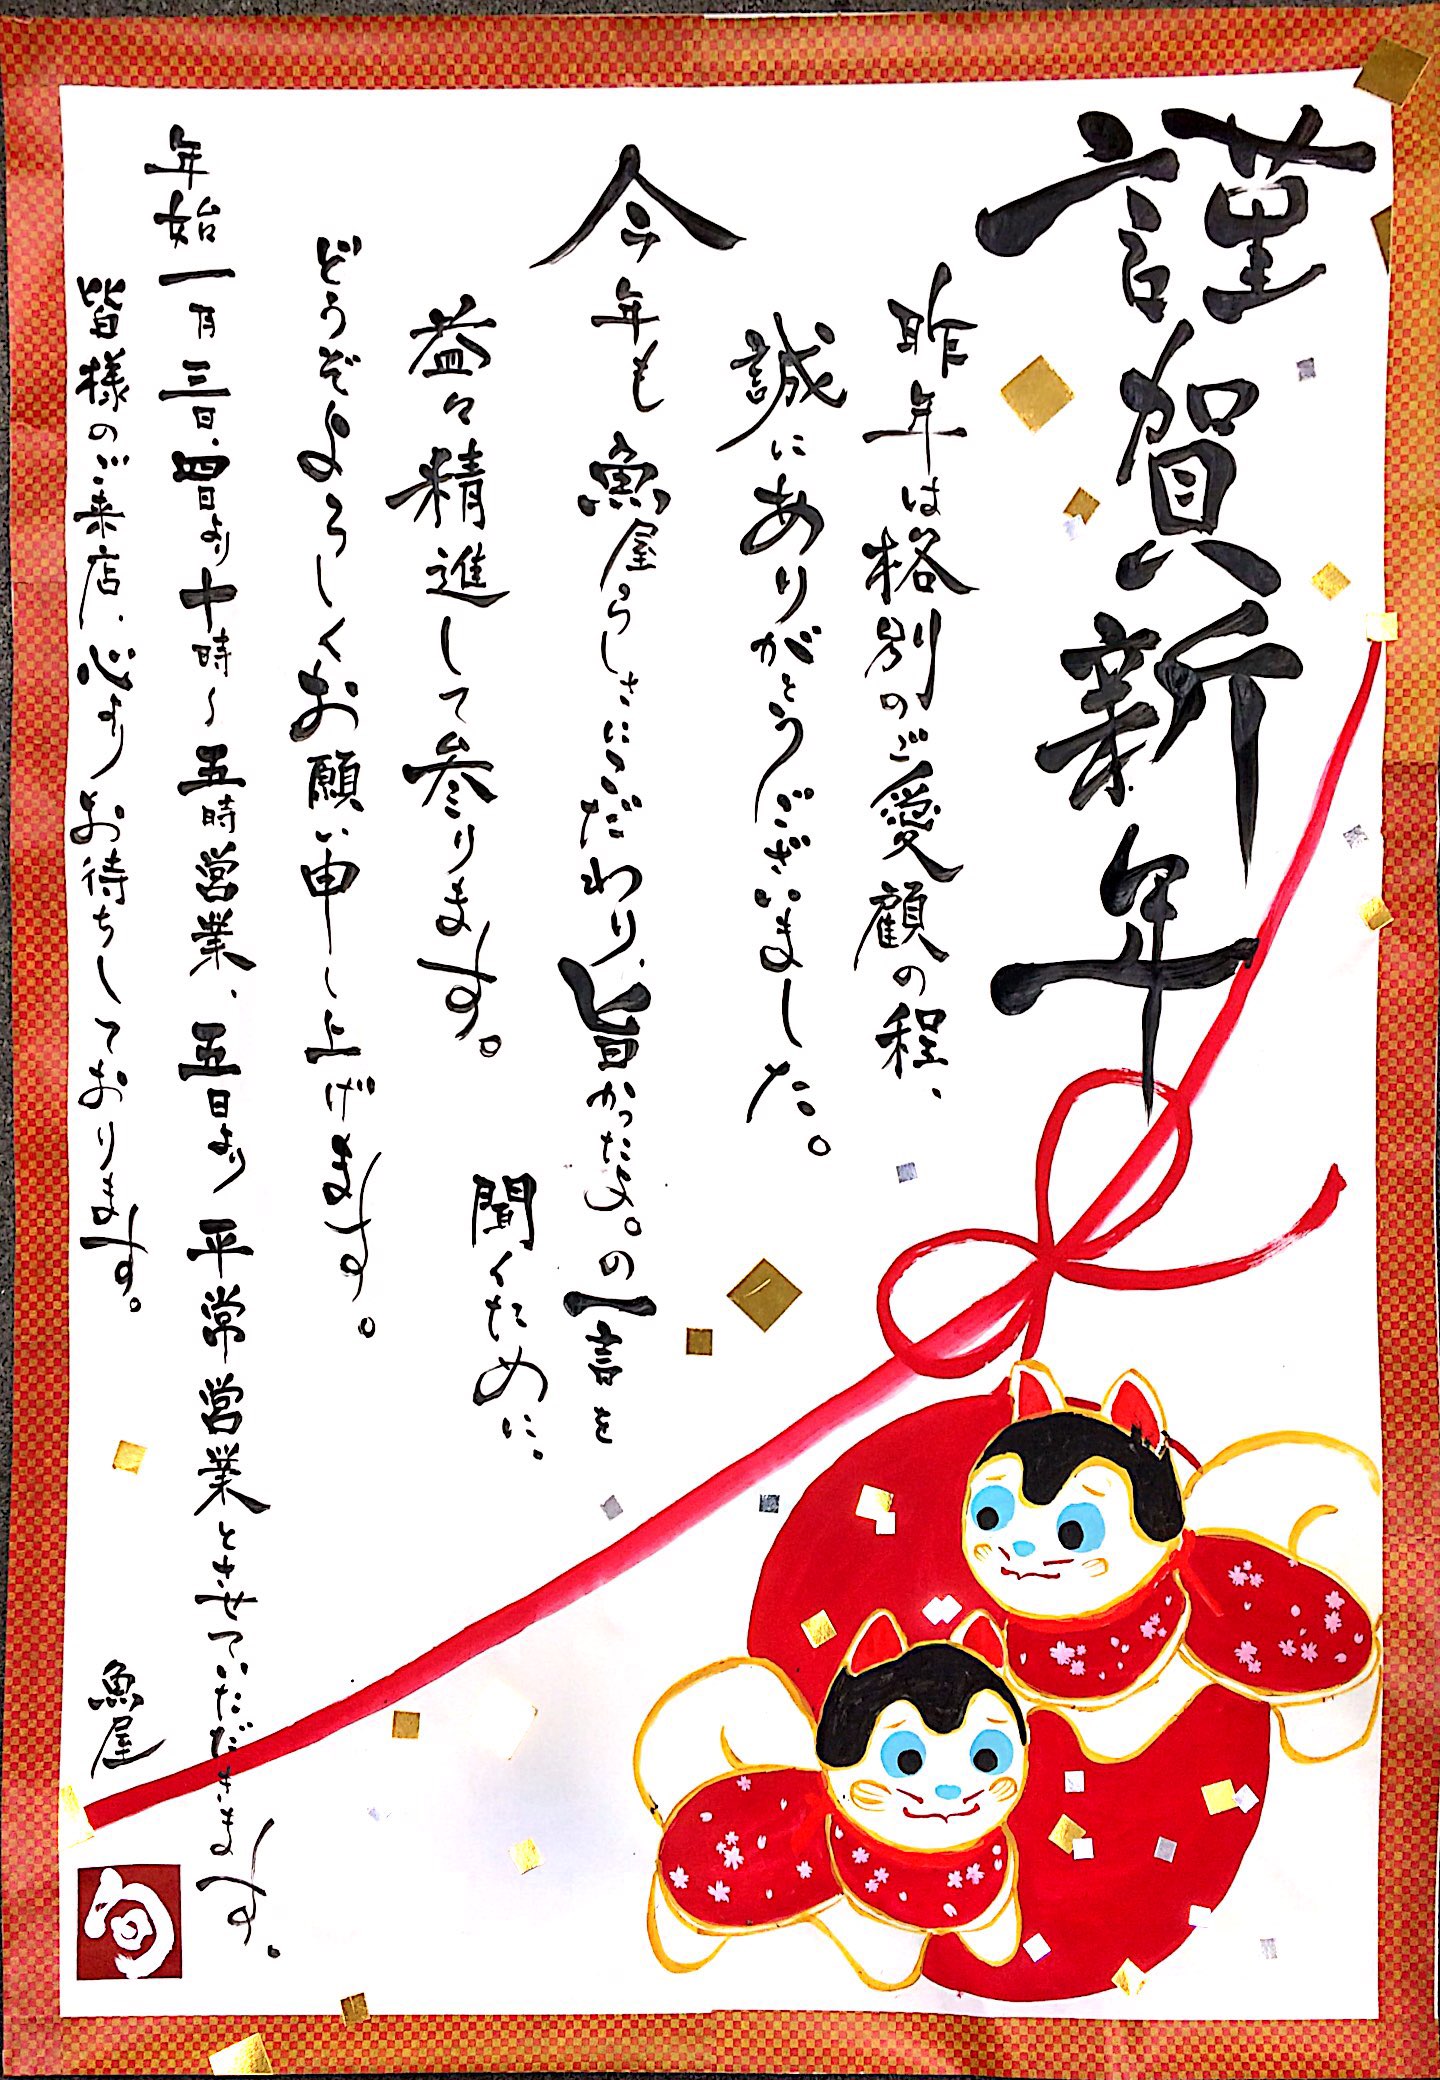 謹賀新年
昨年は格別のご愛顧の程、
誠にありがとうございました。
今年も魚屋らしさにこだわり、旨かったよ。の一言を
聞くために、
益々精進して参ります。
どうぞよろしくお願い申し上げます。
年始一月三日、四日より十時～五時営業、五日より平常営業とさせていただきます。
皆様のご来店、心よりお待ちしております。
魚屋
旬